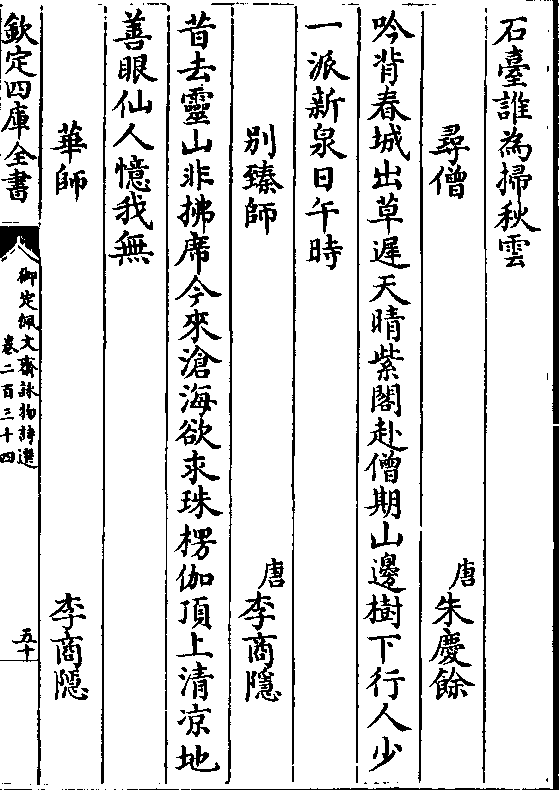 石臺誰為掃秋雲
尋僧
唐
朱慶餘
吟背春城出草遲天晴紫閣赴僧期山邊樹下行人少
一派新泉日午時
別臻師
唐
李商隱
昔去靈山非拂席今來滄海欲求珠楞伽頂上清凉地
善眼仙人憶我無
華師
李商隱
欽定四庫全書
御定佩文齋詠物詩選
卷二百三十四
五十